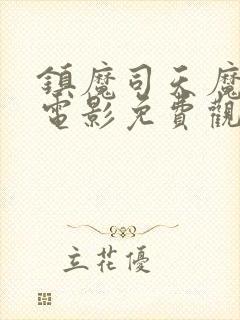 鎮魔司天魔
電影免費觀
立花優